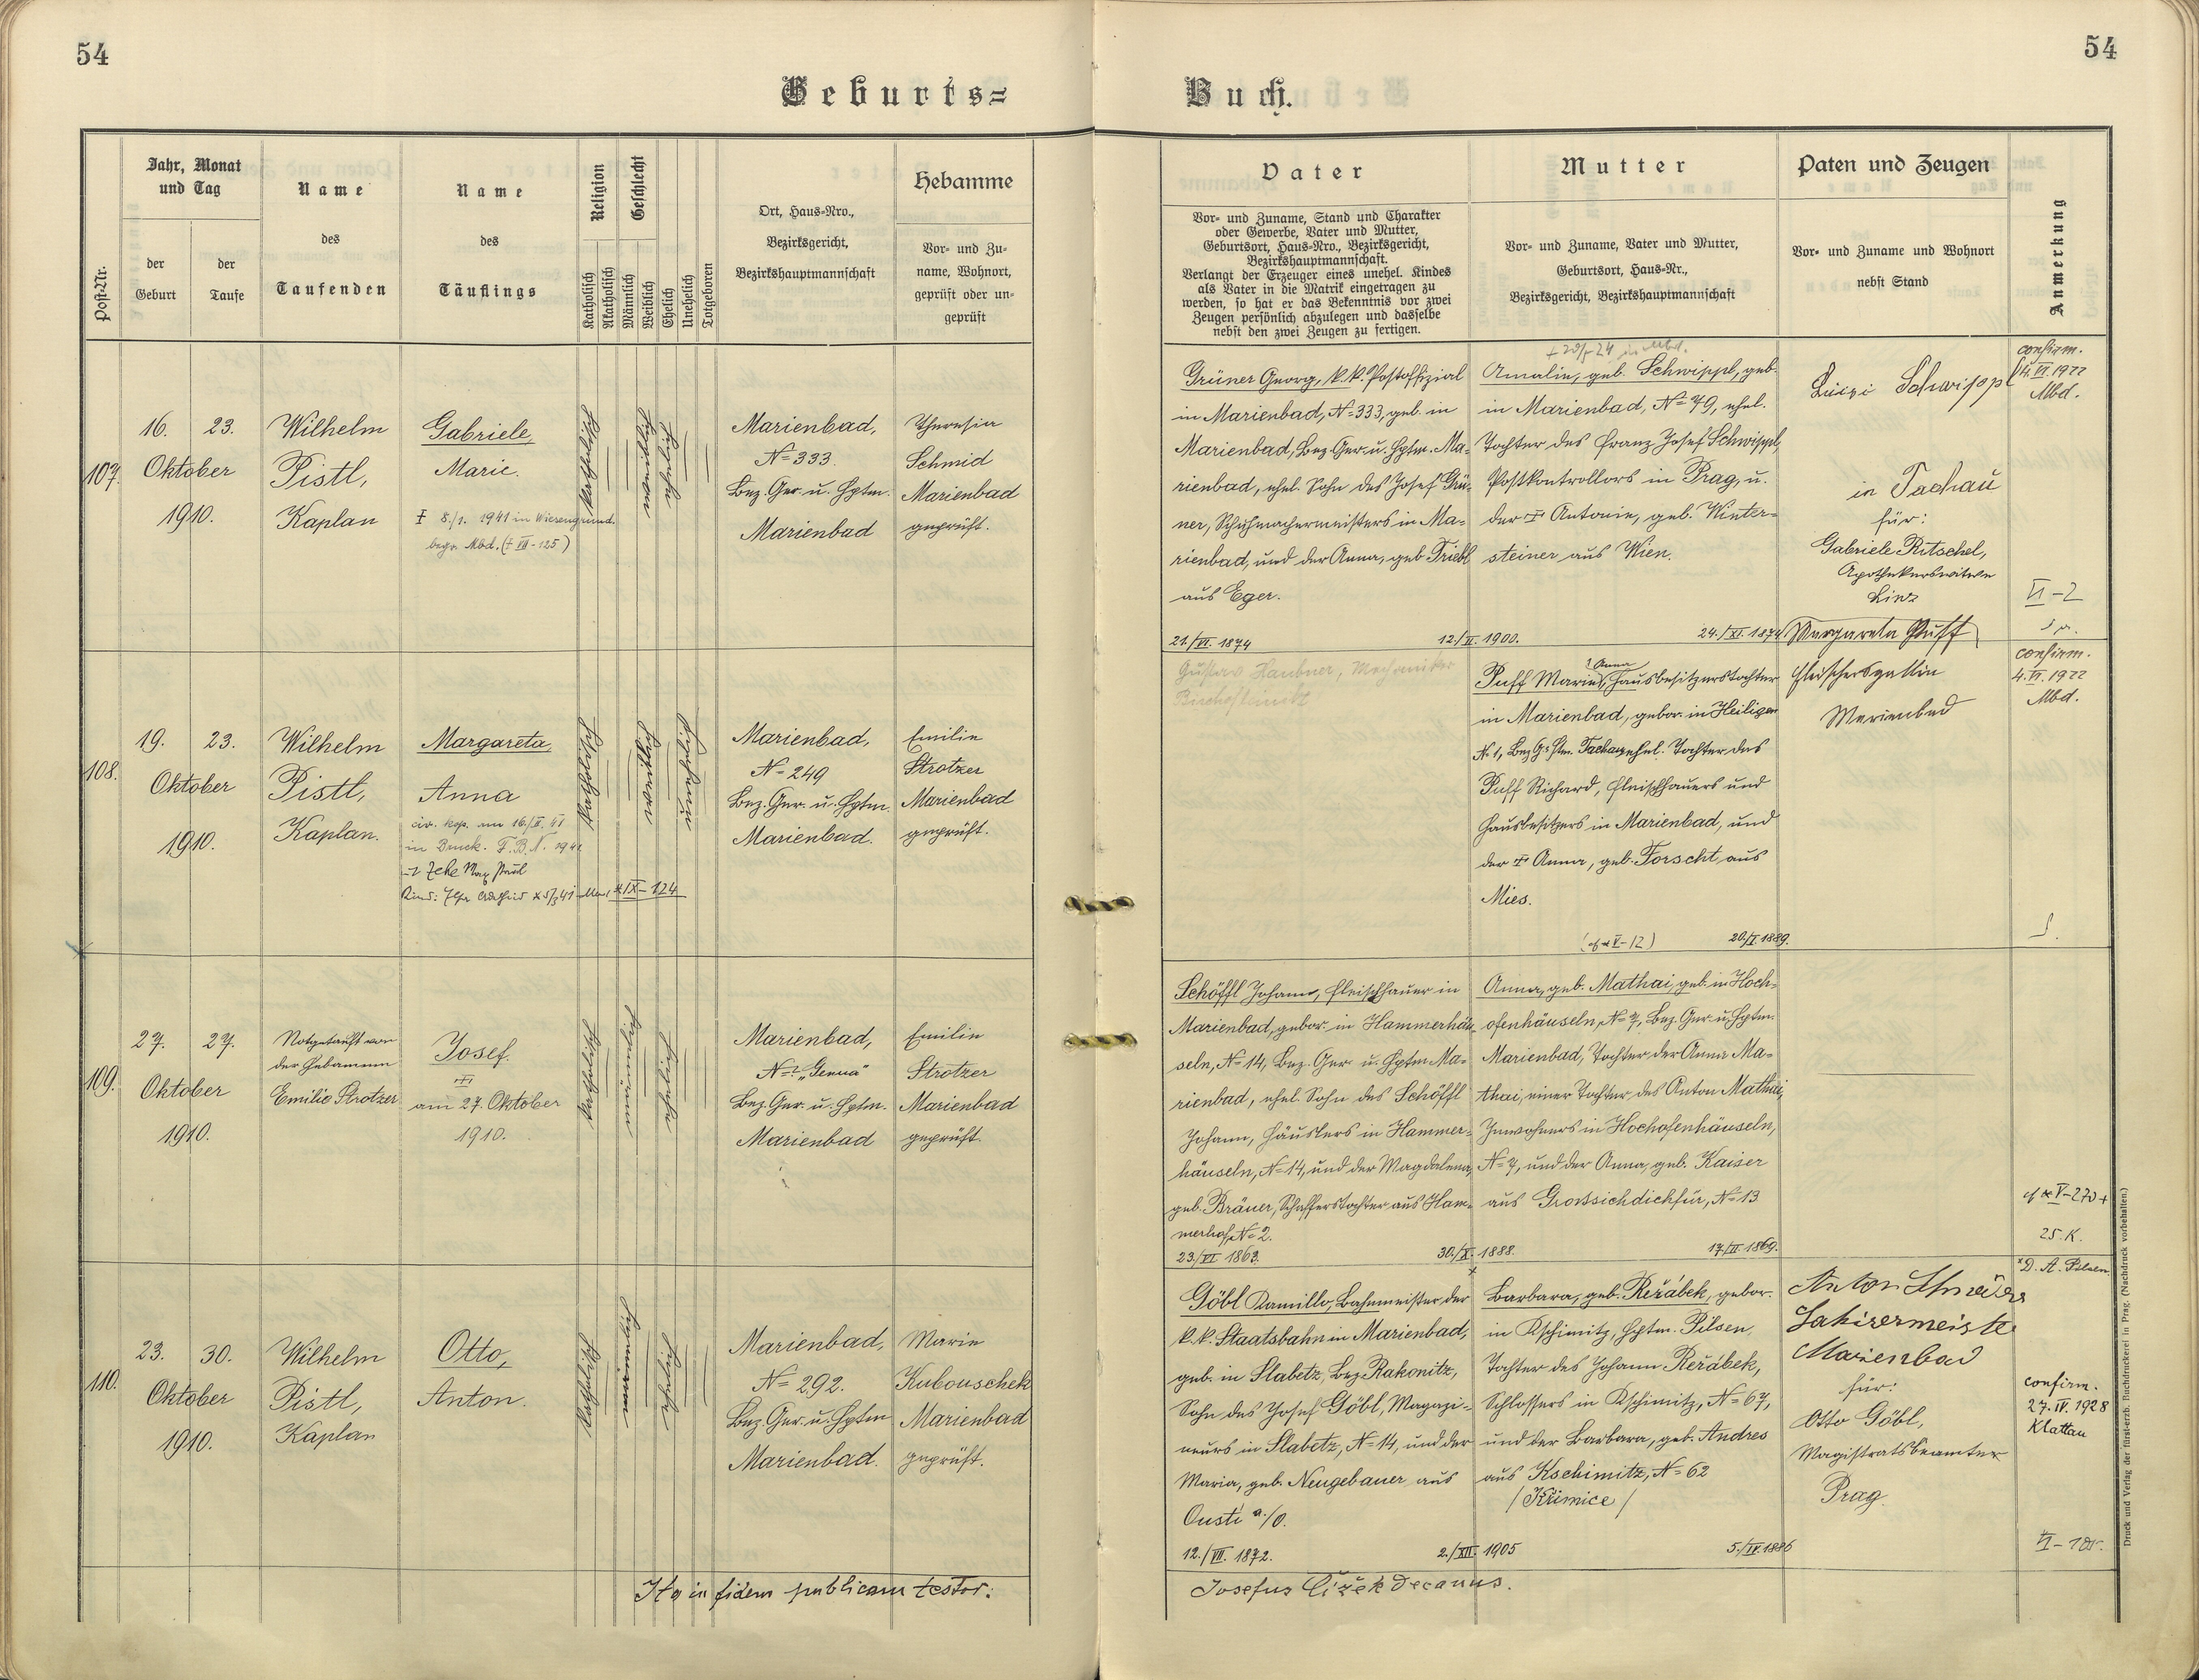 54
54
Geburts=
Buch.
Post-Nr.
Jahr, Monat
und Tag
der
Geburt
der
Taufe
Name
des
Taufenden
Name
des
Täuflings
Religion
Katholisch
Akatholisch
Geschlecht
Männlich
Weiblich
Ehelich
Unehelich
Totgeboren
Ort, Haus-Nro.,
Bezirksgericht,
Bezirkshauptmannschaft
Hebamme
Vor- und Zu-
name, Wohnort,
geprüft oder un-
geprüft
Vater
Vor- und Zuname, Stand und Charakter
oder Gewerbe, Vater und Mutter,
Geburtsort, Haus-Nro., Bezirksgericht,
Bezirkshauptmannschaft.
Verlangt der Erzeuger eines unehel. Kindes
als Vater in die Matrik eingetragen zu
werden, so hat er das Bekenntnis vor zwei
Zeugen persönlich abzulegen und dasselbe
nebst den zwei Zeugen zu fertigen.
Mutter
Vor- und Zuname, Vater und Mutter,
Geburtsort, Haus-Nr.,
Bezirksgericht, Bezirkshauptmannschaft
Paten und Zeugen
Vor- und Zuname und Wohnort
nebst Stand
Anmerkung
107.
16. 23.
Oktober
1910.
Wilhelm
Pistl,
Kaplan
Gabriele,
Marie.
8./1. 1941 in Wiesengrund.
begr. Mbd. († VII-125)
katholisch
weiblich
ehelich
Marienbad,
N= 333.
Bez. Ger. u. Hptm.
Marienbad
Theresia
Schmid
Marienbad
geprüft.
Grüner Georg, k.k. Postoffizial
in Marienbad, N= 333, geb. in
Marienbad, Bez. Ger. u. Hptm. Ma-
rienbad, ehel. Sohn des Josef Grü-
ner, Schuhmachermeisters in Ma-
rienbad, und der Anna, geb. Triebl
aus Eger.
21./VI. 1874
12./II. 1900.
in Mbd.
Amalie, geb. Schwippl, geb.
in Marienbad, N= 79, ehel.
Tochter des Franz Josef Schwippl,
Postkontrollors in Prag, u.
der † Antonie, geb. Winter-
steiner aus Wien.
24./XI. 1874
Luizi Schwippl
in Tachau
für:
Gabriele Ritschel,
Apothekerswitwe
Linz
confirm.
4. VI. 1922
Mbd.
VI-2
108.
19. 23.
Oktober
1910.
Wilhelm
Pistl,
Kaplan.
Margareta,
Anna
civ. kop. am 16./II. 41
katholisch
weiblich
unehelich
*IX-124
Marienbad,
N= 249
Bez. Ger. u. Hptm.
Marienbad.
Emilie
Strotzer
Marienbad
geprüft.
Gustav Haubner, Mechaniker
Puff Marie, Hausbesitzerstochter
Anna
in Marienbad, gebor. in Heiligen
N= 1, Bez. G. Hptm. Tachau, ehel. Tochter des
Puff Richard, Fleischhauers und
Hausbesitzers in Marienbad, und
der † Anna, geb. Forscht, aus
Mies.
20./I. 1889.
Margareta Puff
Fleischersgattin
Marienbad
confirm.
4. VI. 1922
Mbd.
109.
27. 27.
Oktober
1910.
Notgetauft von
der Hebamme
Emilie Strotzer
Josef.
†
am 27. Oktober
1910.
katholisch
männlich
ehelich
Marienbad,
N=? „Genua"
Bez. Ger. u. Hptm.
Marienbad
Emilie
Strotzer
Marienbad
geprüft.
Schöffl Johann, Fleischhauer in
Marienbad, gebor. in Hammerhäu-
seln, N= 14, Bez. Ger. u. Hptm. Ma-
rienbad, ehel. Sohn des Schöffl
Johann, Häuslers in Hammer-
häuseln, N= 14, und der Magdalena,
geb. Bräuer, Schafferstochter aus Ham-
merhof, N= 2.
23./VI 1863.
30./X. 1888.
Anna, geb. Mathai, geb. in Hoch-
ofenhäuseln, N= 7, Bez. Ger. u. Hptm.
Marienbad, Tochter der Anna Ma-
thai, einer Tochter des Anton Mathai,
Inwohners in Hochofenhäuseln,
N= 7, und der Anna, geb. Kaiser
aus Grossichdichfür, N= 13
17./II. 1869.
25. K.
110.
23. 30.
Oktober
1910.
Wilhelm
Pistl,
Kaplan
Otto,
Anton.
katholisch
männlich
ehelich
Marienbad,
N= 292.
Bez. Ger. u. Hptm
Marienbad.
Marie
Kubouschek
Marienbad
geprüft.
Göbl Kamillo, Bahnmeister der
k.k. Staatsbahn in Marienbad,
geb. in Slabetz, Bez. Rakonitz,
Sohn des Josef Göbl, Magazi-
neurs in Slabetz, N= 14, und der
Maria, geb. Neugebauer aus
Ousti a./O.
12./VII. 1872.
2./XII. 1905
Barbara, geb. Reřábek, gebor.
in Kschimitz, Hptm. Pilsen,
Tochter des Johann Reřábek,
Schlossers in Kschimitz, N= 67,
und der Barbara, geb. Andres
aus Kschimitz, N= 62
/Křimice/
5./IV. 1886
Anton
Marienbad
für:
Otto Göbl,
Magistratsbeamter
Prag.
D. A. Pilsen
confirm.
27. IV. 1928
Klattau
Ita in fidem publicam testor:
Josefus Čížek decanus.
Druck und Verlag der fürst-erzb. Buchdruckerei in Prag. (Nachdruck vorbehalten.)